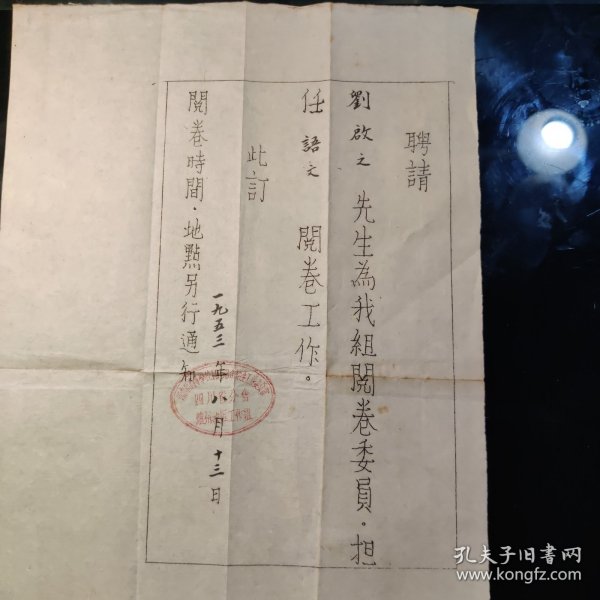 聘請
劉啟之 先生為我組閱卷委員。担
任 語文 閱卷工作。
此訂
閱卷時間．地點另行通知
一九五三年八月十三日
四川省分會
孔夫子旧书网
www.kongfz.com